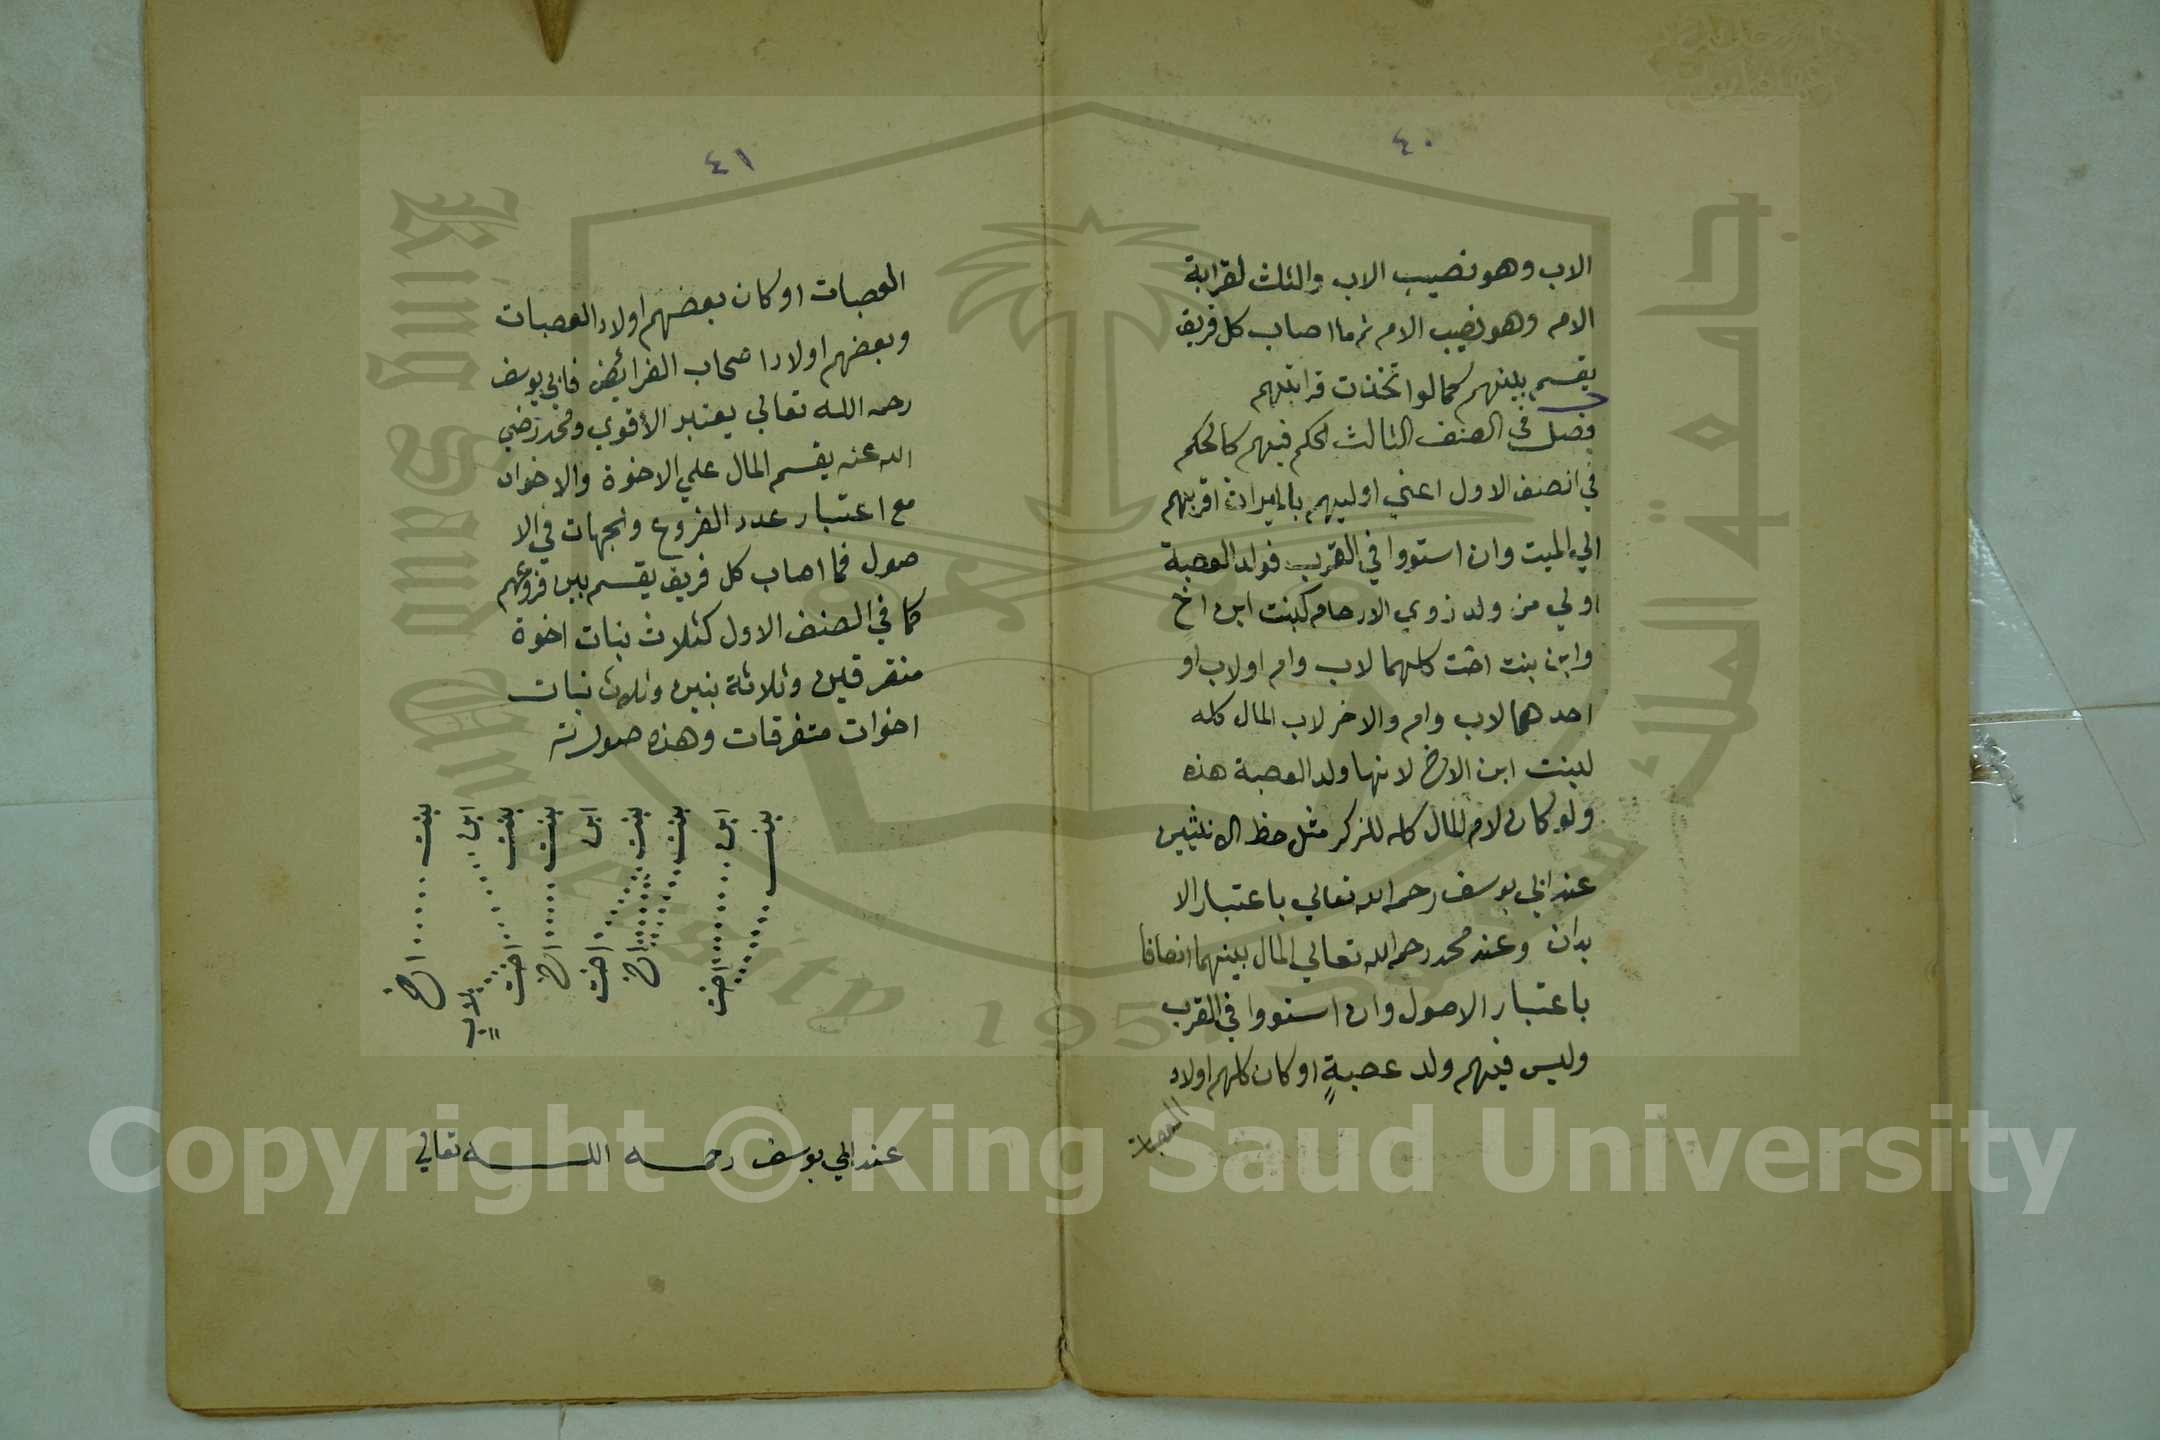 ٤٠
الاب وهو نصيب الاب والثلث لقرابة
الام وهو نصيب الام ثم ما اصاب كل فريق
يقسم بينهم كما لو اتخذت قرابتهم
فصل في الصنف الثالث الحكم فيهم كالحكم
في الصنف الاول اعني اوليهم بالميراث اقربهم
الي الميت وان استووا في القرب فولد العصبة
اولي من ولد ذوي الارحام كبنت ابن اخ
وابن بنت اخت كلهما لاب وام او لاب او
احدهما لاب وام والاخر لاب المال كله
لبنت ابن الاخ لانها ولد العصبة هذه
ولو كان لام المال كله للذكر مثل حظ الانثيين
عند ابي يوسف رحمه الله تعالي باعتبار الا
بدان وعند محمد رحمه الله تعالي المال بينهما انصافا
باعتبار الاصول وان استووا في القرب
وليس فيهم ولد عصبةٍ او كان كلهم اولاد
العصبات
٤١
العصبات او كان بعضهم اولاد العصبات
وبعضهم اولاد اصحاب الفرائض فابي يوسف
رحمه الله تعالي يعتبر الأقوي ومحمد رضي
الله عنه يقسم المال علي الاخوة والاخوات
مع اعتبار عدد الفروع والجهات في الا
صول فما اصاب كل فريق يقسم بين فروعهم
كما في الصنف الاول كثلاث بنات اخوة
متفرقين وثلاثة بنين وثلاث بنات
اخوات متفرقات وهذه صورته
بنت ابن بنت بنت ابن بنت بنت ابن بنت
اخت اخ اخت اخ اخت لابٍ اخ
عند ابي يوسف رحمه الله تعالي
جامعة الملك سعود
King Saud University
1957
Copyright © King Saud University